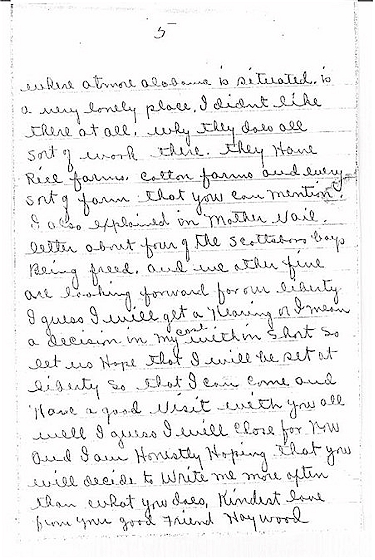 5
where atmore alabama is situated. is
a very lonely place. I didnt like
there at all. why they does all
sort of work there. they Have
Rice farms. cotton farms and every
sort of farm that you can mention.
I also explained in Mother Nail.
letter about four of the Scottsboro boys
Being freed. and we other five
are looking forward for our liberty
I guess I will get a Hearing or I mean
a decision on my case within Short So
let us Hope that I will be set at
liberty So that I can come and
Have a good Visit with you all
well I guess I will Close for Now
and I am Honestly Hoping that you
will decide to Write me more often
than what you does, Kindest love
from your good Friend Haywood